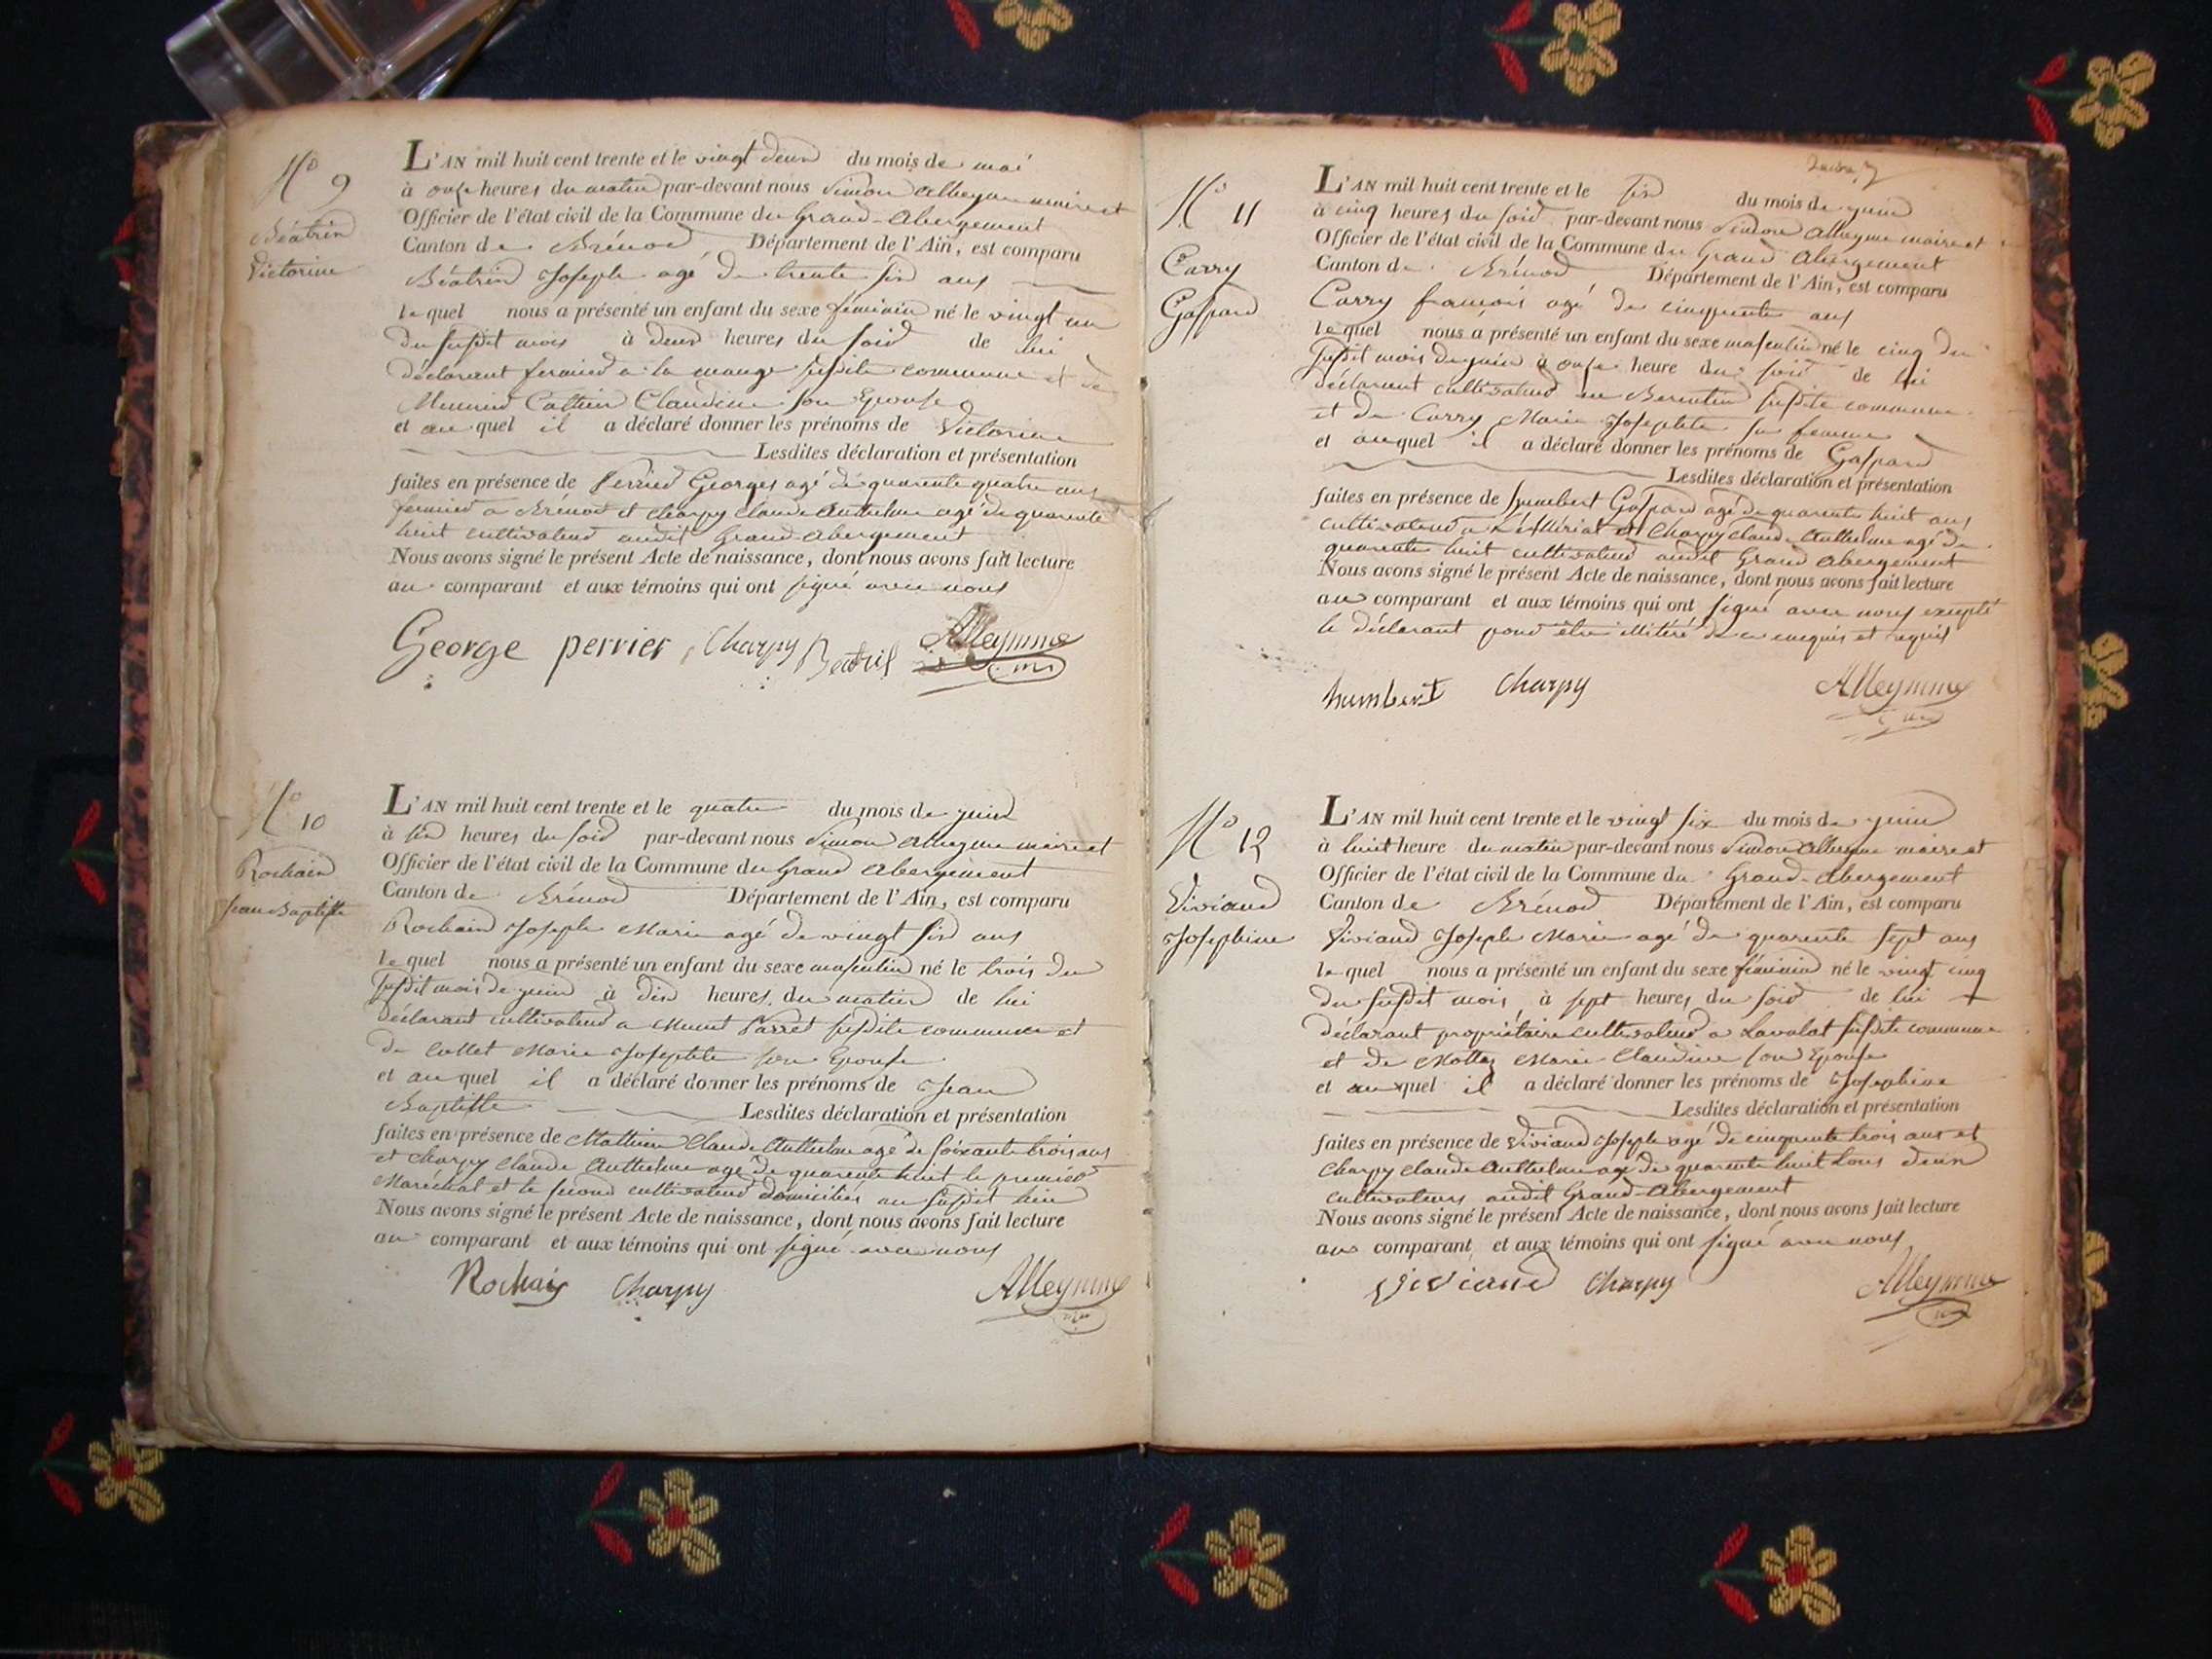 N° 9
Béatrix
Victorine
L'AN mil huit cent trente et le vingt deux du mois de mai
à onze heures du matin par-devant nous Simon Alleyme maire et
Officier de l'état civil de la Commune du Grand-Abergement
Canton de Brénod Département de l'Ain, est comparu
Béatrix Joseph agé de trente six ans
lequel nous a présenté un enfant du sexe féminin né le vingt un
du susdit mois à deux heures du soir de lui
déclarant fermier a la susdite commune et de
Claudine son Epouse
et auquel il a déclaré donner les prénoms de Victorine
Lesdites déclaration et présentation
faites en présence de Perrier Georges agé de quarente quatre ans
fermier a Brénod et Charpy Claude Anthelme agé de quarente
huit cultivateur audit Grand-Abergement
Nous avons signé le présent Acte de naissance, dont nous avons fait lecture
au comparant et aux témoins qui ont signé avec nous
George perrier, Charpy Beatrix Alleymme
N° 10
Rochaix
Jean Baptiste
L'AN mil huit cent trente et le quatre du mois de juin
à six heures du soir par-devant nous Simon Alleyme maire et
Officier de l'état civil de la Commune du Grand Abergement
Canton de Brénod Département de l'Ain, est comparu
Rochaix Joseph Marie agé de vingt six ans
lequel nous a présenté un enfant du sexe masculin né le trois du
susdit mois de juin à dix heures du matin de lui
déclarant cultivateur a susdite commune et
de Collet Marie Josephte son Epouse
et auquel il a déclaré donner les prénoms de Jean
Baptiste Lesdites déclaration et présentation
faites en présence de Mathieu Claude Anthelme agé de soixante trois ans
et Charpy Claude Anthelme agé de quarente huit le premier
Marechal et le second cultivateur domiciliés au susdit lieu
Nous avons signé le présent Acte de naissance, dont nous avons fait lecture
au comparant et aux témoins qui ont signé avec nous
Rochaix Charpy Alleymme
N° 11
Carry
Gaspard
L'AN mil huit cent trente et le six du mois de juin
à cinq heures du soir par-devant nous Simon Alleyme maire et
Officier de l'état civil de la Commune du Grand Abergement
Canton de Brénod Département de l'Ain, est comparu
Carry françois agé de cinquente ans
lequel nous a présenté un enfant du sexe masculin né le cinq du
susdit mois de juin à onze heure du soir de lui
déclarant cultivateur en susdite commune
et de Carry Marie Josephte sa femme
et auquel il a déclaré donner les prénoms de Gaspard
Lesdites déclaration et présentation
faites en présence de humbert Gaspard agé de quarente huit ans
cultivateur a et Charpy Claude Anthelme agé de
quarente huit cultivateur audit Grand Abergement
Nous avons signé le présent Acte de naissance, dont nous avons fait lecture
au comparant et aux témoins qui ont signé avec nous excepté
le déclarant pour être illitéré de ce enquis et requis
humbert Charpy Alleymme
N° 12
Viviand
Josephine
L'AN mil huit cent trente et le vingt six du mois de juin
à huit heure du matin par-devant nous Simon Alleyme maire et
Officier de l'état civil de la Commune du Grand-Abergement
Canton de Brénod Département de l'Ain, est comparu
Viviand Joseph Marie agé de quarente sept ans
lequel nous a présenté un enfant du sexe féminin né le vingt cinq
du susdit mois à sept heures du soir de lui
déclarant propriétaire cultivateur a Lavalat susdite commune
et de Mottaz Marie Claudine son Epouse
et auquel il a déclaré donner les prénoms de Josephine
Lesdites déclaration et présentation
faites en présence de Viviand Joseph agé de cinquente trois ans et
Charpy Claude Anthelme agé de quarente huit tous deux
cultivateurs audit Grand-Abergement
Nous avons signé le présent Acte de naissance, dont nous avons fait lecture
au comparant et aux témoins qui ont signé avec nous
Viviand Charpy Alleymme